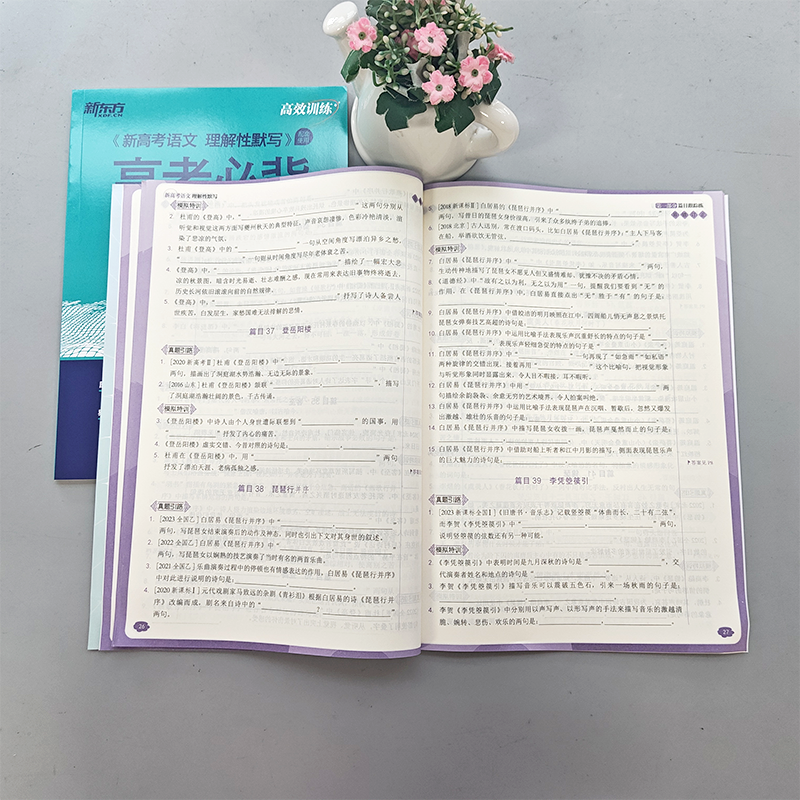 新东方
XDF.CN
高效训练
《新高考语文 理解性默写》
高考必背
新高考语文 理解性默写
模拟特训
，这两句分别从
2. 杜甫的《登高》中，“____，____”
听觉和视觉这两方面写夔州秋天的典型特征，声音哀怨凄惨，色彩冷艳清淡，渲
染了悲凉的气氛。
3. 杜甫《登高》中，“____”一句从空间角度写漂泊异乡之愁，
“____”一句则从时间角度写尽年老体衰之苦。
4. 《登高》中，“____，____”描绘了一幅宏大悲
凉的秋景图，暗含时光易逝、壮志难酬之感，现在常用来表达旧事物终将逝去、
历史长河依旧滚滚向前的自然规律。
5. 《登高》中，“____，____”抒写了诗人备尝人
世疾苦，白发层生，家愁国难无法排解的悲情。
篇目 37 登岳阳楼
真题引路
1. [2020 新高考Ⅱ] 杜甫《登岳阳楼》中“____，____”
两句，描画出了洞庭湖水势浩瀚、无边无际的景象。
2. [2016 山东] 杜甫《登岳阳楼》颔联“____，____”，描写
了洞庭湖浩瀚壮阔的景色，千古传诵。
模拟特训
3. 《登岳阳楼》中诗人由个人身世遭际联想到“____”的国事，用
“____”抒发了内心的痛苦。
4. 《登岳阳楼》虚实交错、今昔对照的诗句是：____，____。
5. 杜甫在《登岳阳楼》中，用“____，____”两句
抒发了漂泊天涯、老病孤独之感。
篇目 38 琵琶行并序
真题引路
1. [2023 全国乙] 白居易《琵琶行并序》中“____，____”
两句，写琵琶女结束演奏后的动作及神态，同时也引出下文对其身世的叙述。
2. [2022 全国乙] 白居易《琵琶行并序》中“____，____”
两句，写琵琶女以娴熟的技艺演奏了当时有名的两首乐曲。
3. [2021 全国乙] 乐曲演奏过程中的停顿也有情感表达的作用，白居易《琵琶行并序》
中对此进行说明的诗句是：____，____。
4. [2020 新课标Ⅰ] 元代戏剧家马致远的杂剧《青衫泪》根据白居易的诗《琵琶行并
序》改编而成，剧名来自诗中的“____？____”
两句。
26
篇目跟踪练
5. [2018 新课标Ⅲ] 白居易的《琵琶行并序》中“____，____”
两句，写昔日的琵琶女身价很高，引来了众多纨绔子弟的追捧。
6. [2018 北京] 古人送别，常在渡口码头，比如白居易《琵琶行并序》：“主人下马客
在船，举酒欲饮无管弦，____，____。”
模拟特训
7. 白居易《琵琶行并序》中，“____，____”两句，
生动传神地描写了琵琶女不愿见人但又盛情难却、犹豫不决的矛盾心情。
8. 《道德经》中“故有之以为利，无之以为用”一句，提醒我们要看到“无”的
作用，在《琵琶行并序》中，白居易直接点出“无”胜于“有”的句子是：
____，____。
9. 白居易《琵琶行并序》中借皎洁的明月映照在江中，四周船儿悄无声息之景烘托
琵琶女弹奏技艺高超的诗句是：____，____。
10. 白居易《琵琶行并序》中运用比喻手法表现乐声沉重舒长的特点的句子是“____
____”，表现乐声轻细急促的特点的句子是“____”。
11. 白居易《琵琶行并序》中“____”一句再现了“如急雨”“如私语”
两种旋律的交错出现，接着再用“____”这个比喻句，把视觉形象
与听觉形象同时显露出来，令人目不暇接、耳不暇听。
12. 白居易《琵琶行并序》中用“____，____”两
句描绘余韵袅袅、余意无穷的艺术境界，令人拍案叫绝。
13. 白居易《琵琶行并序》中运用比喻手法表现琵琶声在沉咽、暂歇后，忽然又爆发
出激越、雄壮的乐音的句子是：____，____。
14. 白居易《琵琶行并序》中描写琵琶女收拨一画，琵琶声戛然而止的句子是：
____，____。
15. 白居易《琵琶行并序》中借助对船上听者和江中月影的描写，侧面表现琵琶乐声
的巨大魅力的诗句是：____，____。
答案见 P9
篇目 39 李凭箜篌引
真题引路
1. [2023 新课标全国Ⅰ]《旧唐书·音乐志》记载竖箜篌“体曲而长，二十有二弦”，
而李贺《李凭箜篌引》中“____，____”两句，
说明竖箜篌的弦数还有另一种可能。
模拟特训
2. 《李凭箜篌引》中表明时间是九月深秋的诗句是“____”，交
代演奏者姓名和地点的诗句是“____”。
3. 李贺《李凭箜篌引》描写音乐可以震破五色石，引来一场秋雨的句子是：
____，____。
4. 李贺《李凭箜篌引》中分别用以声写声、以形写声的手法来描写音乐的激越清
脆、婉转、悲伤、欢乐的两句是：____，____。
27